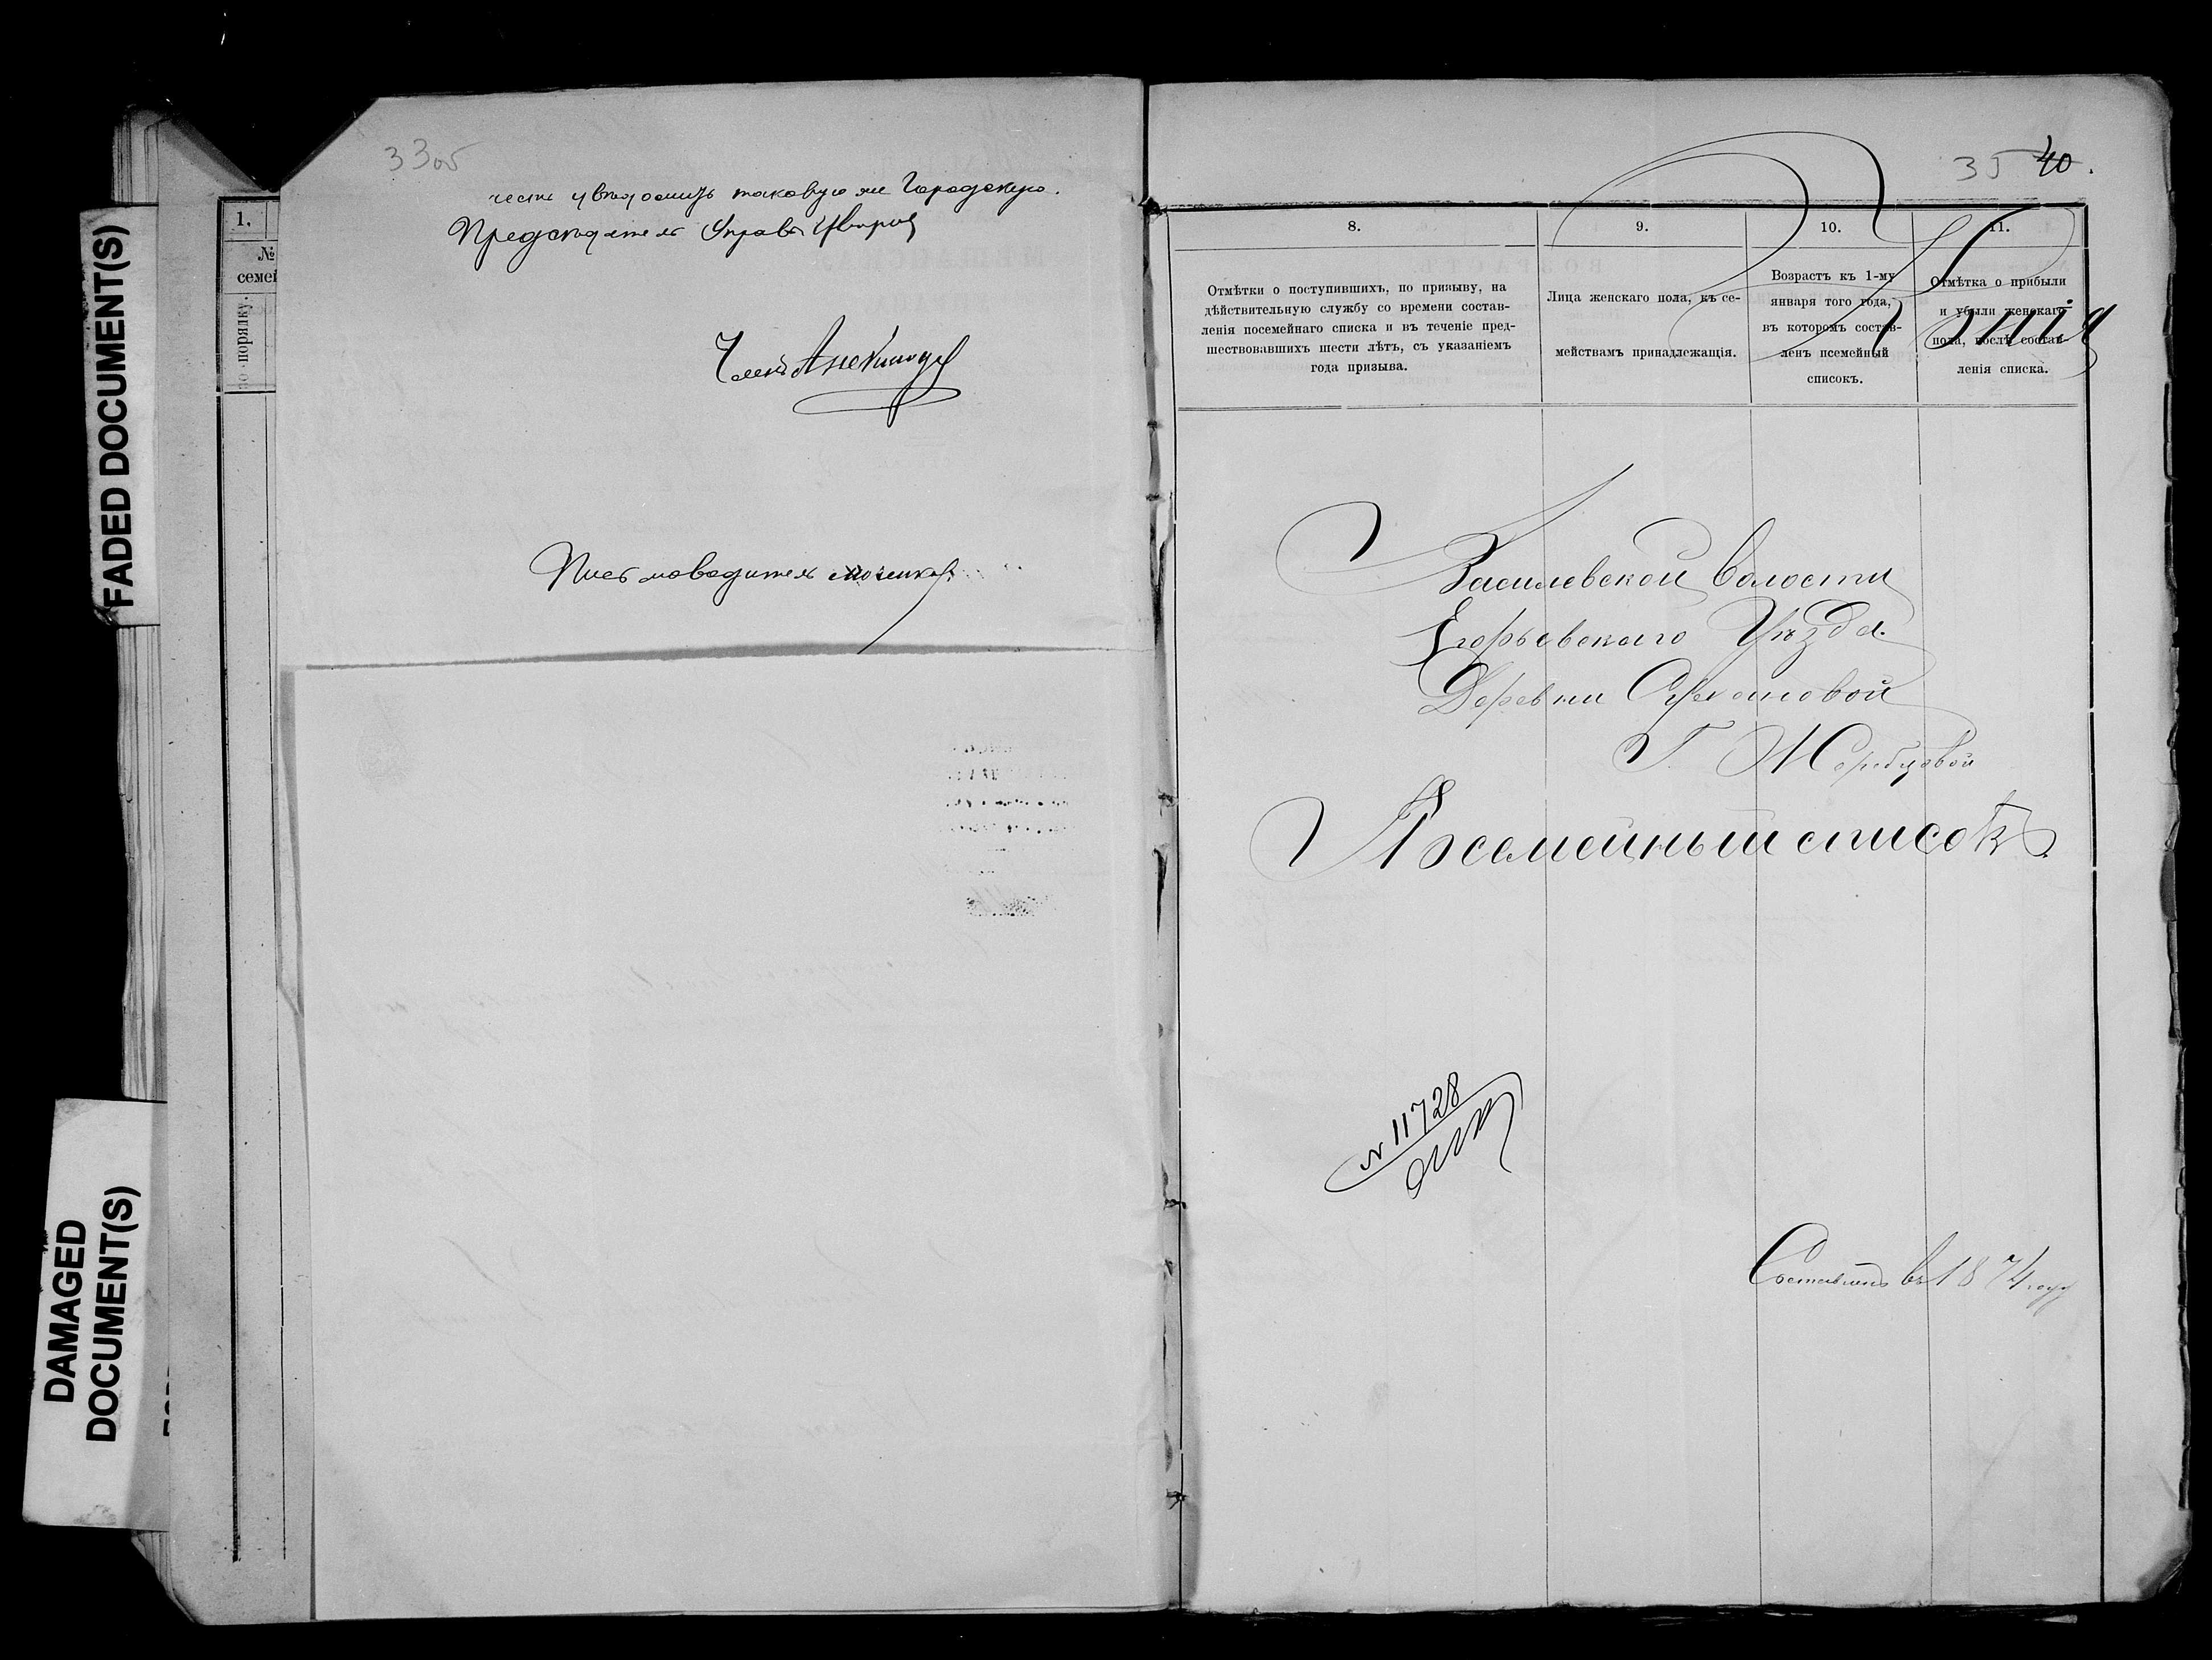 FADED DOCUMENT(S)
DAMAGED
DOCUMENT(S)
1.
№
семей
по порядку.
33об
честь увѣдомить таковую же Городскую.
Предсѣдатель Управы
Членъ
Письмоводитель
35 40.
8. 9. 10. 11.
Отмѣтки о поступившихъ, по призыву, на
дѣйствительную службу со времени состав-
ленія посемейнаго списка и въ теченіе пред-
шествовавшихъ шести лѣтъ, съ указаніемъ
года призыва.
Лица женскаго пола, къ се-
мействамъ принадлежащія.
Возрастъ къ 1-му
января того года,
въ которомъ состав-
ленъ псемейный
списокъ.
Отмѣтка о прибыли
и убыли женскаго
пола, послѣ состав-
ленія списка.
Василевской волости
Егорьевскаго Уѣзда.
Деревни
Г. Жеребцовой
Посемейный списокъ.
№ 11728
Составленъ въ 1874 году